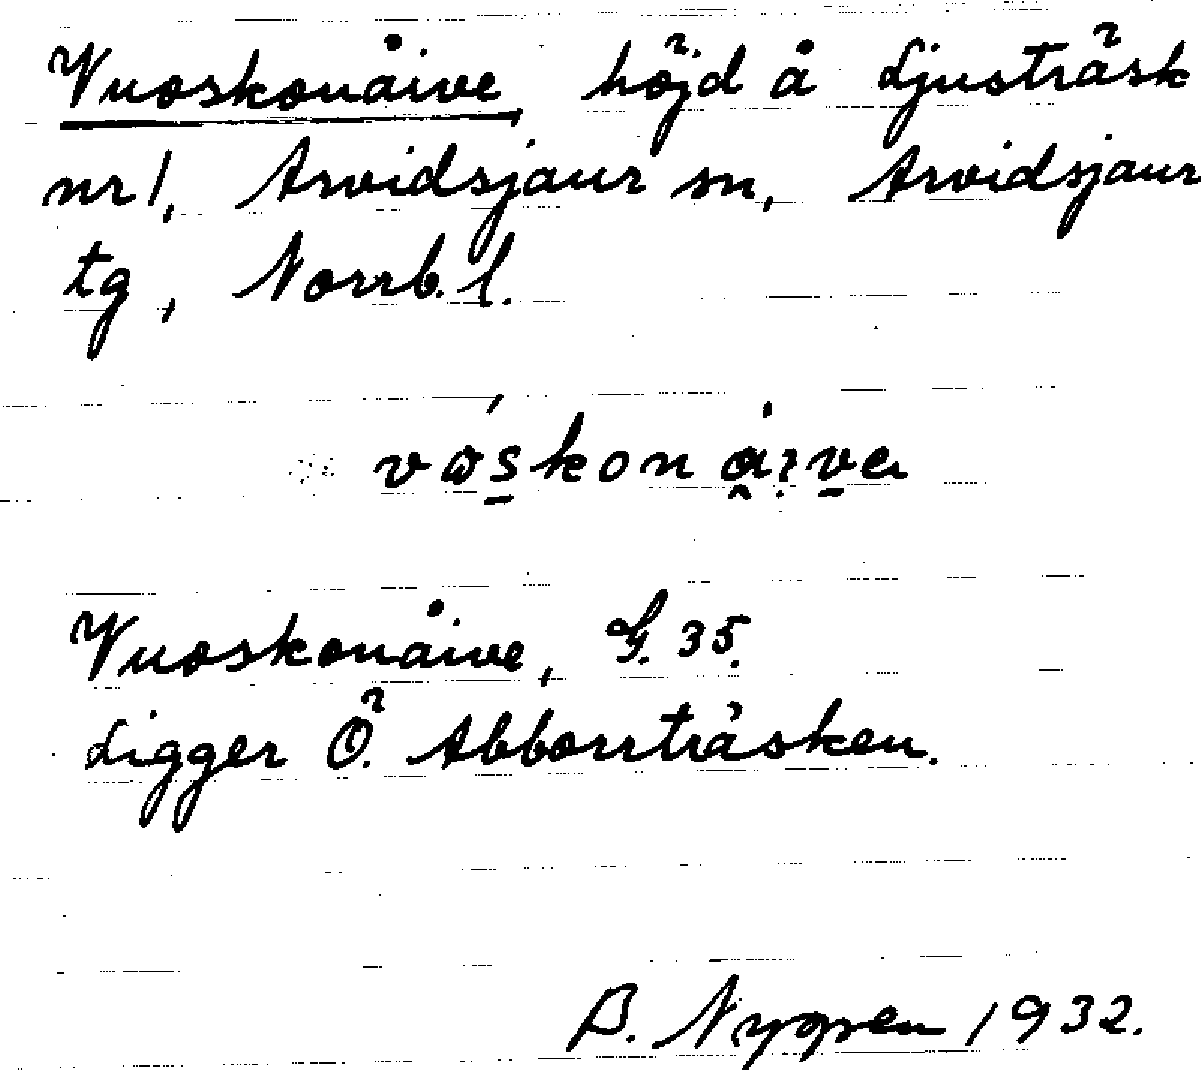 Vuoskonåive, höjd å Ljusträsk
nr 1, Arvidsjaur sn, Arvidsjaur
tg, Norrb. l.
Vuoskonåive, G. 35.
Ligger Ö. Abborrträsken.
B. Nygren 1932.